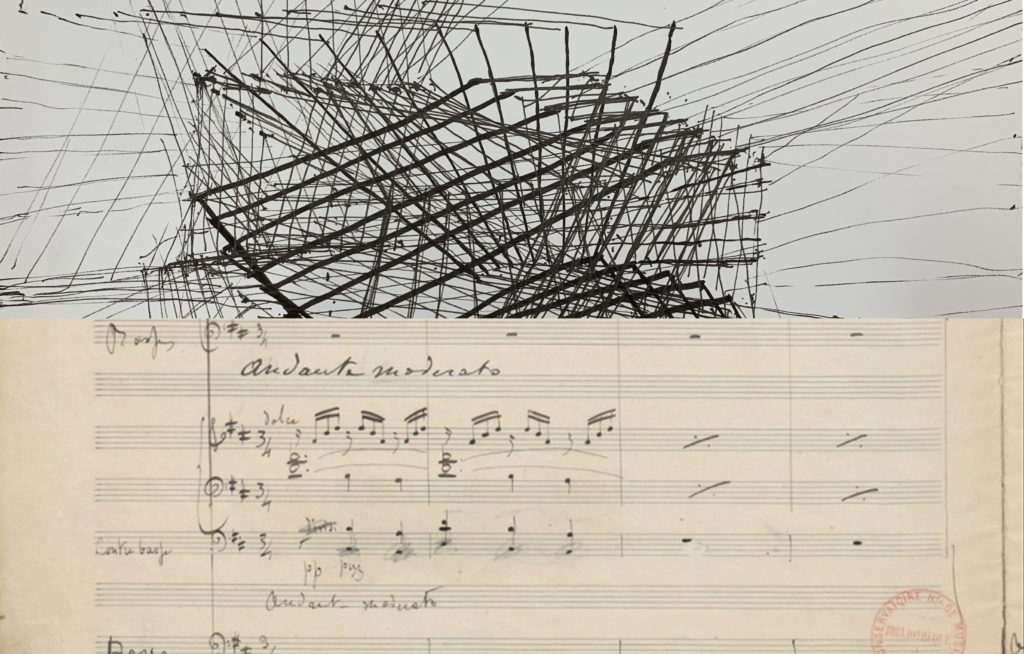 Andante moderato
dolce
Contrebasse
pp pizz
Andante moderato
CONSERVATOIRE NAL DE MUSIQUE
BIBLIOTHÈQUE